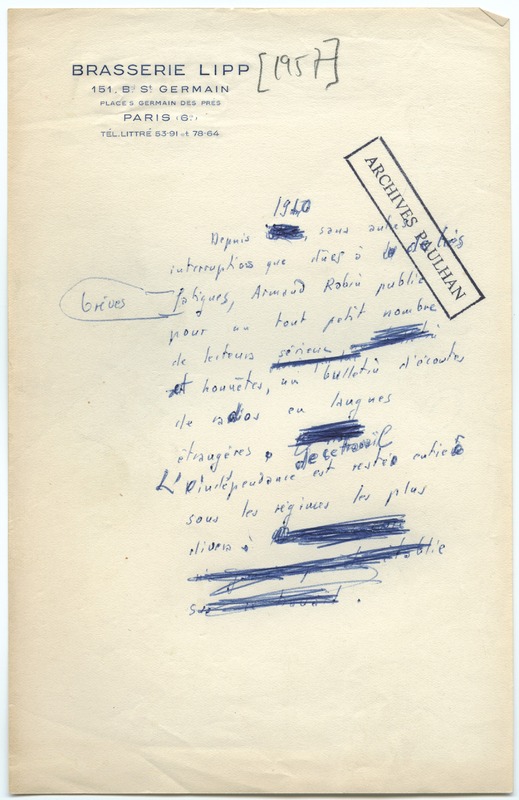 BRASSERIE LIPP
151, Bᴰ Sᵗ GERMAIN
PLACE S GERMAIN DES PRÉS
PARIS (6ᵉ)
TÉL. LITTRÉ 53-91 et 78-64
[1957]
ARCHIVES PAULHAN
1940
Depuis , sans autres
interruptions que dues à de très
brèves
fatigues, Armand Robin publie
pour un tout petit nombre
de lecteurs sérieux
et honnêtes, un bulletin d'écoutes
de radios en langues
étrangères. de ce travail
L'indépendance est restée entière
sous les régimes les plus
divers